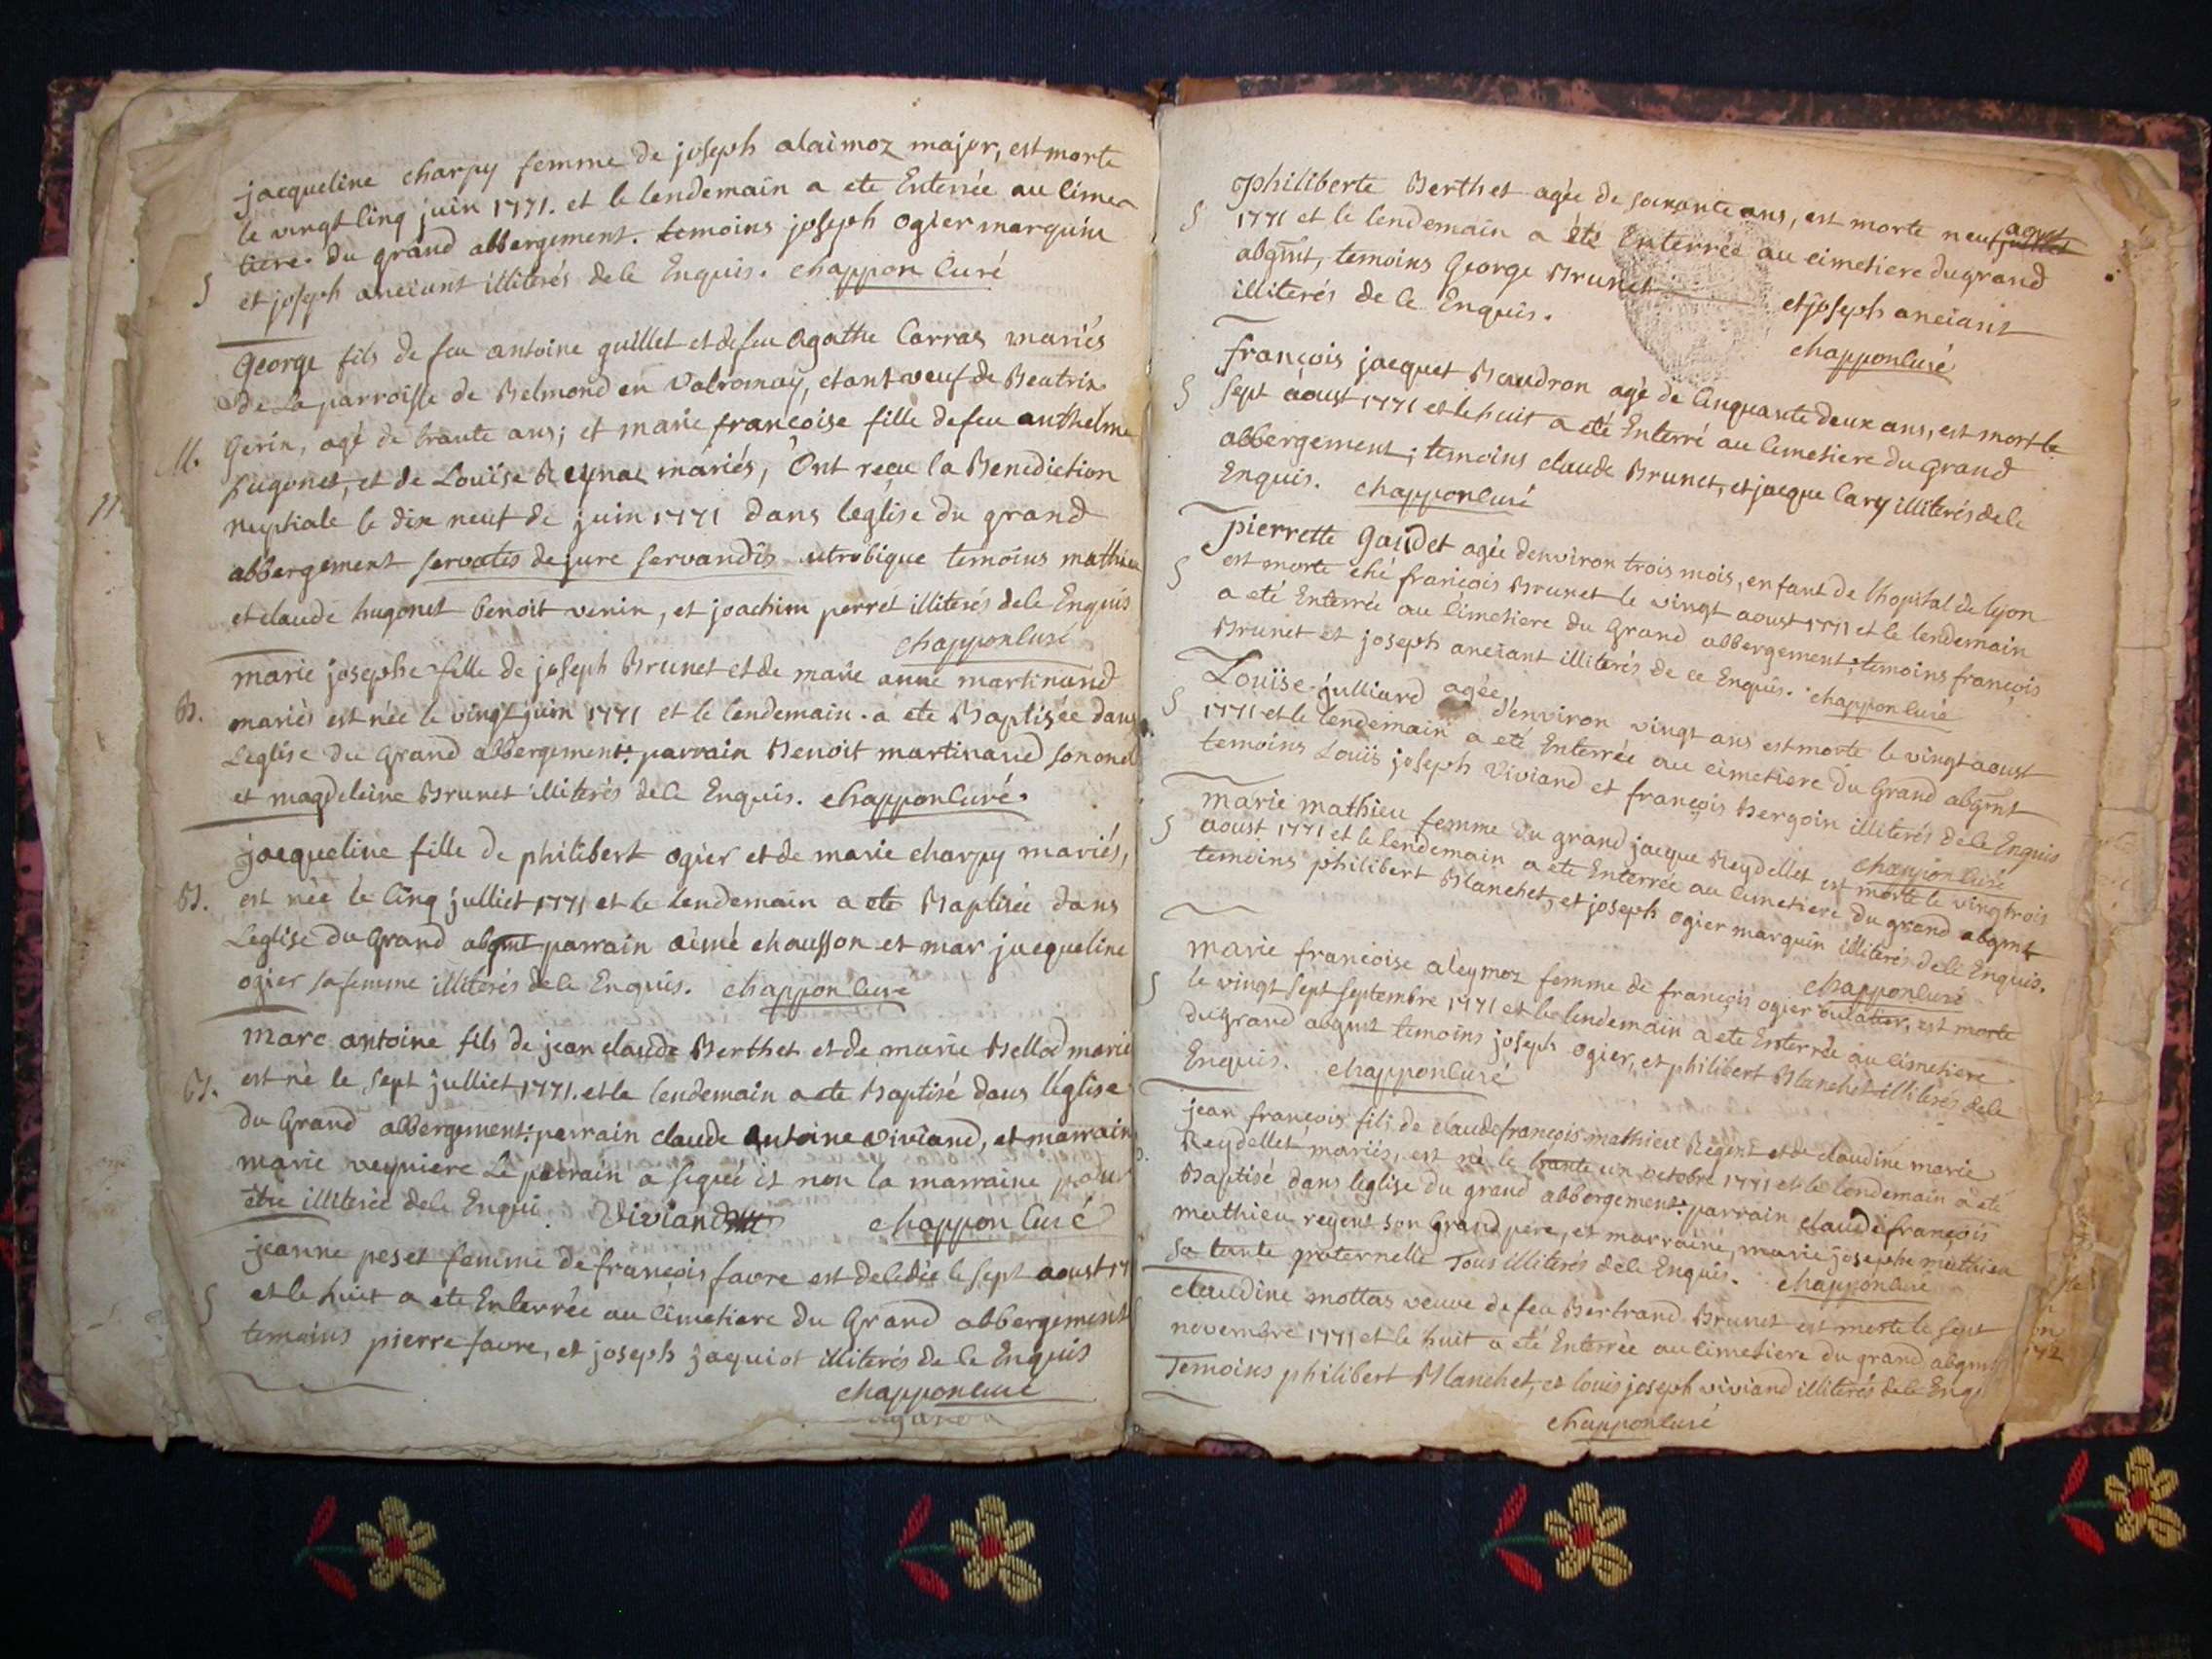 jacqueline charpy femme de joseph alaimoz major, est morte
le vingt cinq juin 1771. et le lendemain a ete Enterrée au cime-
tiere du grand abbergement. temoins joseph ogier marquin
S et joseph anciant illiterés de ce Enquis. chappon Curé
George fils de feu antoine guillet et de feu agathe Carras mariés
de La parroisse de Belmond en Valromay, etant veuf de Beatrix
M. Gerin, agé de trante ans; et marie françoise fille de feu anthelme
hugonet, et de Louise Reynac mariés, Ont reçu la Benediction
11 nuptiale le dix neuf de juin 1771 dans leglise du grand
abbergement servatis de jure servandis utrobique temoins mathieu
et claude hugonet benoit venin, et joachim perret illiterés de ce Enquis
chappon Curé
marie josephe fille de joseph Brunet et de marie anne martinand
B. mariés est née le vingt juin 1771 et le lendemain a ete Baptisée dans
Leglise du Grand abbergement: parrain Benoit martinand son oncl
et magdeleine Brunet illiterés de ce Enquis. chappon Curé.
jacqueline fille de philibert ogier et de marie charpy mariés,
B. est née le Cinq julliet 1771 et le lendemain a ete Baptisée dans
Leglise du Grand abgmt parrain aimé chausson et mar jacqueline
ogier sa femme illiterés de ce Enquis. chappon Curé
marc antoine fils de jean claude Berthet et de marie Bellod marié
B. est né le sept julliet 1771. et le lendemain a ete Baptisé dans l'église
du Grand abbergement: parrain claude antoine viviand, et marrain
marie veyniere Le parrain a signé et non la marraine pour
être illiterée de ce Enqui. Viviand chappon Curé
jeanne peset femme de françois favre est decedée le sept aoust 17
S et le huit a ete Enterrée au Cimetiere du Grand abbergement
temoins pierre favre, et joseph jaquiot illiterés de ce Enquis
chappon Curé
philiberte Berthet agée de soixante ans, est morte neuf julliet aoust
S 1771 et le lendemain a été Enterrée au cimetiere du grand
abgmt, temoins George Brunet et joseph anciant
illiterés de ce Enquis.
chappon Curé
françois jacquet Baudron agé de Cinquante deux ans, est mort le
S sept aoust 1771 et le huit a été Enterré au Cimetiere du Grand
abbergement; temoins claude Brunet, et jacque Cary illiterés de ce
Enquis. chappon Curé
pierrette Gaudet agée denviron trois mois, enfant de l'hopital de lyon
S est morte ché françois Brunet le vingt aoust 1771 et le lendemain
a eté Enterrée au Cimetiere du Grand abbergement; temoins françois
Brunet et joseph anciant illiterés de ce Enquis. chappon Curé
Louïse julliard agée d'environ vingt ans est morte le vingt aoust
S 1771 et le lendemain a eté Enterrée au cimetiere du Grand abgmt
temoins Louis joseph Viviand et françois Bergoin illiterés de ce Enquis
chappon Curé
marie mathieu femme du grand jacque Reydellet est morte le vingtrois
S aoust 1771 et le lendemain a ete Enterrée au Cimetiere du grand abgmt
temoins philibert Blanchet, et joseph ogier marquin illiterés de ce Enquis.
chappon Curé
marie françoise aleymoz femme de françois ogier est morte
S le vingt sept septembre 1771 et le lendemain a ete Enterrée au Cimetiere
du Grand abgmt temoins joseph ogier, et philibert Blanchet illiterés de ce
Enquis. chappon Curé
jean françois fils de claude françois mathieu Regent et de claudine marie
Reydellet mariés, est né le trante un octobre 1771 et le lendemain a eté
Baptisé dans leglise du grand abbergement: parrain claude françois
mathieu regent son Grand pere, et marraine, marie josephe mathieu
sa tante paternelle Tous illiterés de ce Enquis. chappon Curé
claudine mottas veuve de feu Bertrand Brunet est morte le sept
novembre 1771 et le huit a été Enterrée au Cimetiere du grand abgmt
Temoins philibert Blanchet, et louis joseph viviand illiterés de ce Enqu
chappon Curé